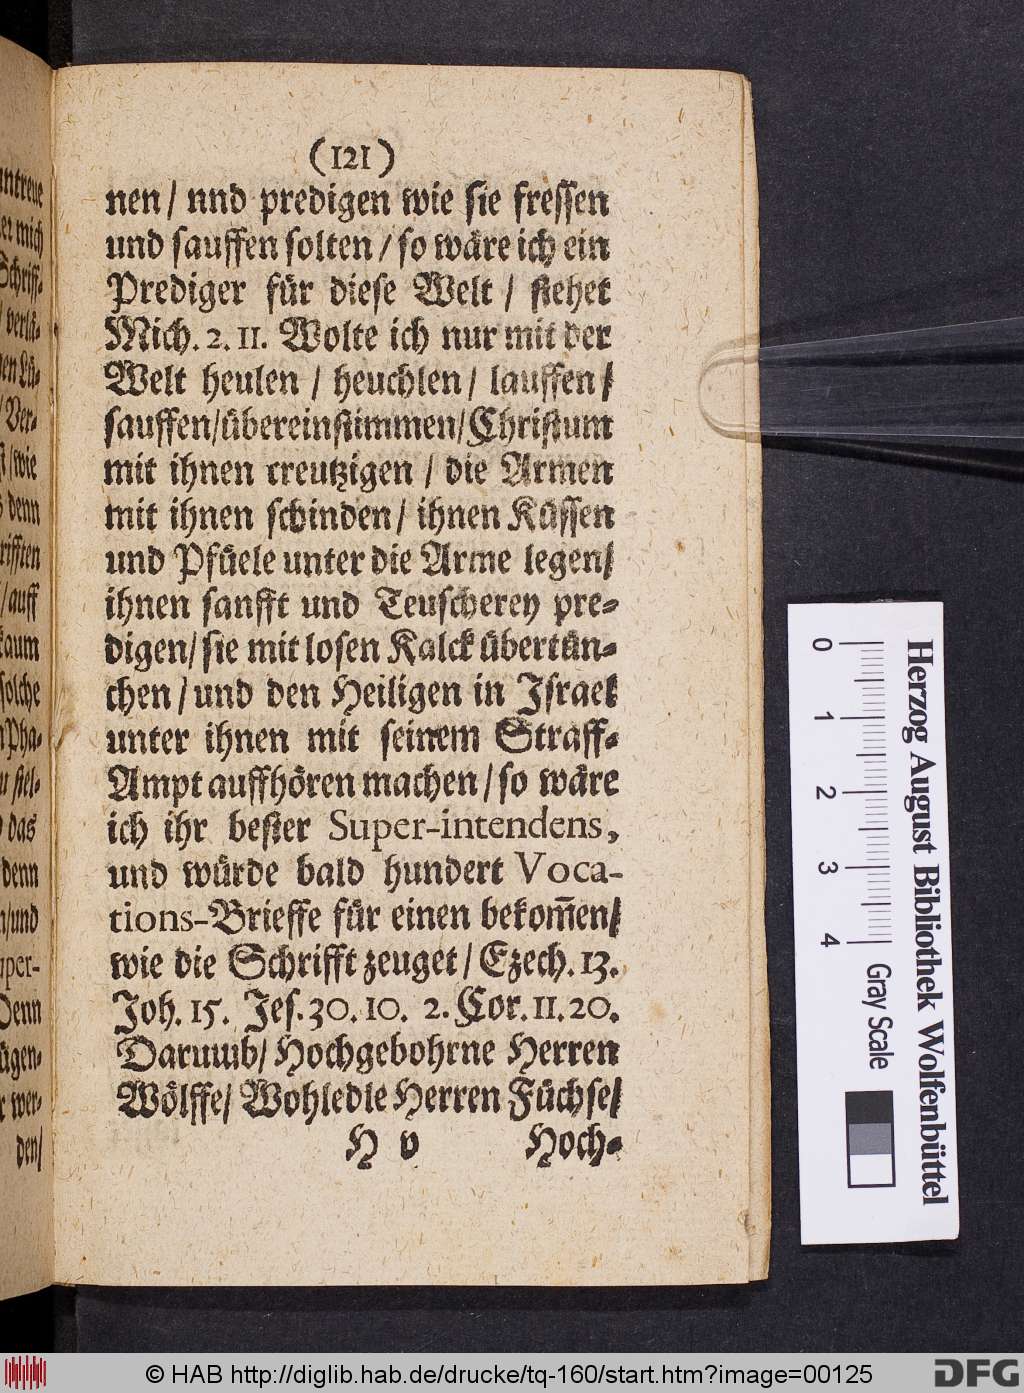 (121)
nen/ nnd predigen wie sie fressen
und sauffen solten/ so wäre ich ein
Prediger für diese Welt/ stehet
Mich. 2. 11. Wolte ich nur mit der
Welt heulen/ heuchlen/ lauffen/
sauffen/übereinstimmen/Christum
mit ihnen creutzigen/ die Armen
mit ihnen schinden/ ihnen Küssen
und Pfüele unter die Arme legen/
ihnen sanfft und Teuscherey pre-
digen/ sie mit losen Kalck übertün-
chen/ und den Heiligen in Israel
unter ihnen mit seinem Straff-
Ampt auffhören machen/ so wäre
ich ihr bester Super-intendens,
und würde bald hundert Voca-
tions-Brieffe für einen bekom̃en/
wie die Schrifft zeuget/ Ezech. 13.
Joh. 15. Jes. 30. 10. 2. Cor. 11. 20.
Darumb/ Hochgebohrne Herren
Wölffe/ Wohledle Herren Füchse/
H v Hoch-
untreue
mich
Schriff-
verlä-
Ver-
wie
denn
/auff
kaum
solche
Pha-
das
denn
/und
uper-
Denn
wer-
den/
Herzog August Bibliothek Wolfenbüttel
0 1 2 3 4
Gray Scale
© HAB http://diglib.hab.de/drucke/tq-160/start.htm?image=00125
DFG